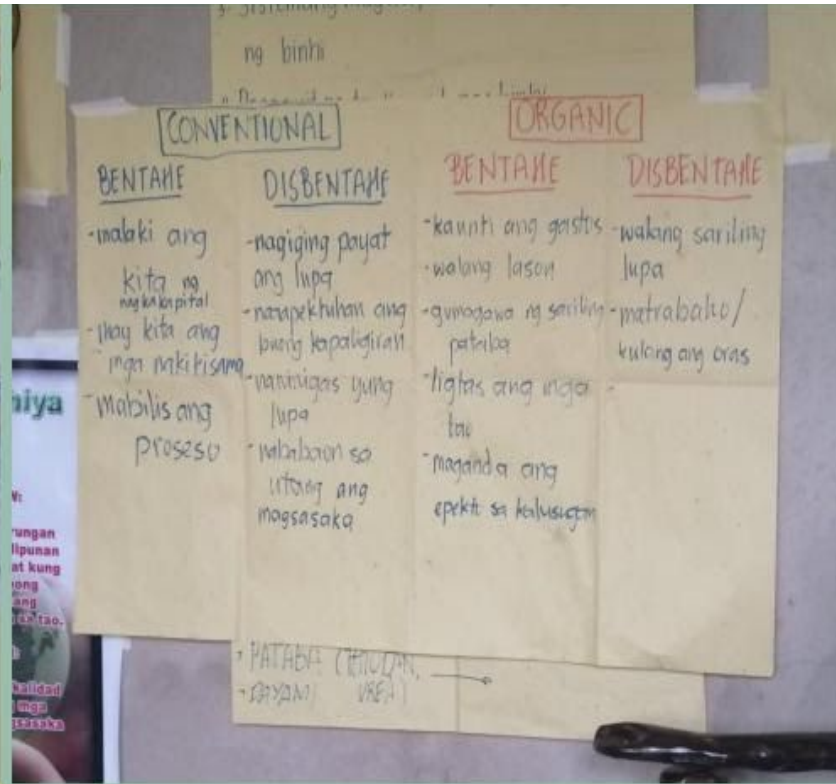 ng binhi
CONVENTIONAL
BENTAHE
-malaki ang
kita ng
nagkakapital
-may kita ang
mga nakikisama
-mabilis ang
proseso
DISBENTAHE
-nagiging payat
ang lupa
-naaapektuhan ang
buong kapaligiran
-naninigas yung
lupa
-nababaon sa
utang ang
magsasaka
ORGANIC
BENTAHE
-kaunti ang gastos
-walang lason
-gumagawa ng sariling
pataba
-ligtas ang mga
tao
-maganda ang
epekto sa kalusugan
DISBENTAHE
-walang sariling
lupa
-matrabaho/
kulang ang oras
-
PATABA
UREA
niya
ungan
lipunan
at kung
ong
ang
sa tao.
kalidad
mga
gsasaka